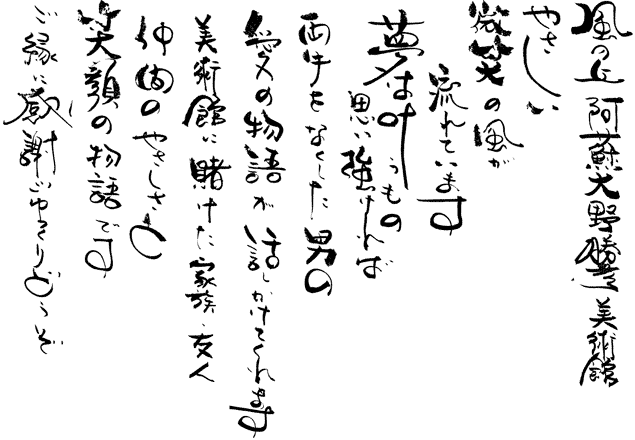 風の丘 阿蘇大野勝彦美術館
やさしい
微笑の風が
流れています
夢は叶うもの
思い強ければ
両手をなくした男の
愛の物語が話しかけてくれます
美術館に賭けた家族、友人
仲間のやさしさと
笑顔の物語です
ご縁に感謝しごゆっくりどうぞ